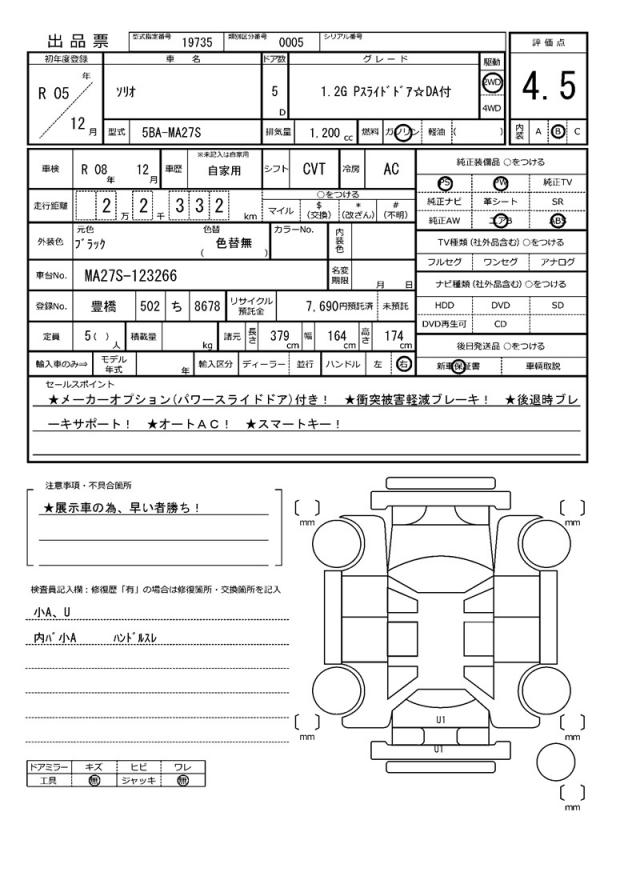 出品票 型式指定番号 19735 類別区分番号 0005 シリアル番号
評価点
4.5
内装 A B C
初年度登録 車名 ドア数 グレード 駆動
R 05 年 12 月
ソリオ 5 D 1.2G Pスライドドア☆DA付 2WD 4WD
型式 5BA-MA27S 排気量 1.200 cc 燃料 ガソリン 軽油 ( )
車検 R 08 年 12 月 車歴 ※未記入は自家用 自家用 シフト CVT 冷房 AC
走行距離 2 万 2 千 3 3 2 km
○をつける
マイル $ (交換) * (改ざん) # (不明)
外装色 元色 ブラック 色替 色替無 ( ) カラーNo. 内装色
車台No. MA27S-123266 名変期限 月 日
登録No. 豊橋 502 ち 8678 リサイクル預託金 7,690円預託済 未預託
定員 5( ) 人 積載量 kg 諸元 長さ 379 cm 幅 164 cm 高さ 174 cm
輸入車のみ⇒ モデル年式 年 輸入区分 ディーラー 並行 ハンドル 左 右
純正装備品 ○をつける
PS PW 純正TV
純正ナビ 革シート SR
純正AW エアB ABS
TV種類 (社外品含む) ○をつける
フルセグ ワンセグ アナログ
ナビ種類 (社外品含む) ○をつける
HDD DVD SD
DVD再生可 CD
後日発送品 ○をつける
新車保証書 車輌取説
セールスポイント
★メーカーオプション(パワースライドドア)付き! ★衝突被害軽減ブレーキ! ★後退時ブレ
ーキサポート! ★オートAC! ★スマートキー!
注意事項・不具合箇所
★展示車の為、早い者勝ち!
検査員記入欄:修復歴「有」の場合は修復箇所・交換箇所を記入
小A、U
内バ小A ハンドルスレ
ドアミラー キズ ヒビ ワレ
工具 無 ジャッキ 無
mm
mm
U1
U1
mm
mm
mm